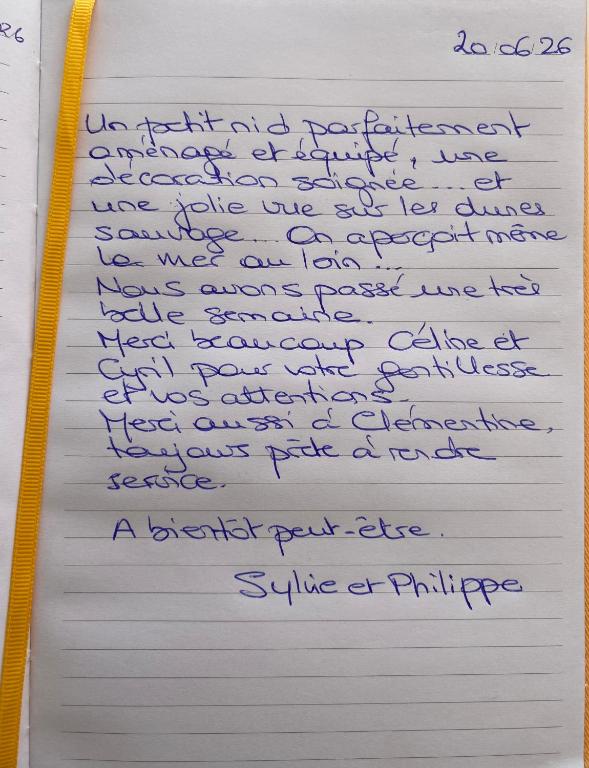 R6
20/06/26
Un petit nid parfaitement
aménagé et équipé, une
décoration soignée... et
une jolie vue sur les dunes
sauvage... On aperçoit même
la mer au loin...
Nous avons passé une très
belle semaine.
Merci beaucoup Céline et
Cyril pour votre gentillesse
et vos attentions.
Merci aussi à Clémentine,
toujours prête à rendre
service.
A bientôt peut-être.
Sylvie et Philippe